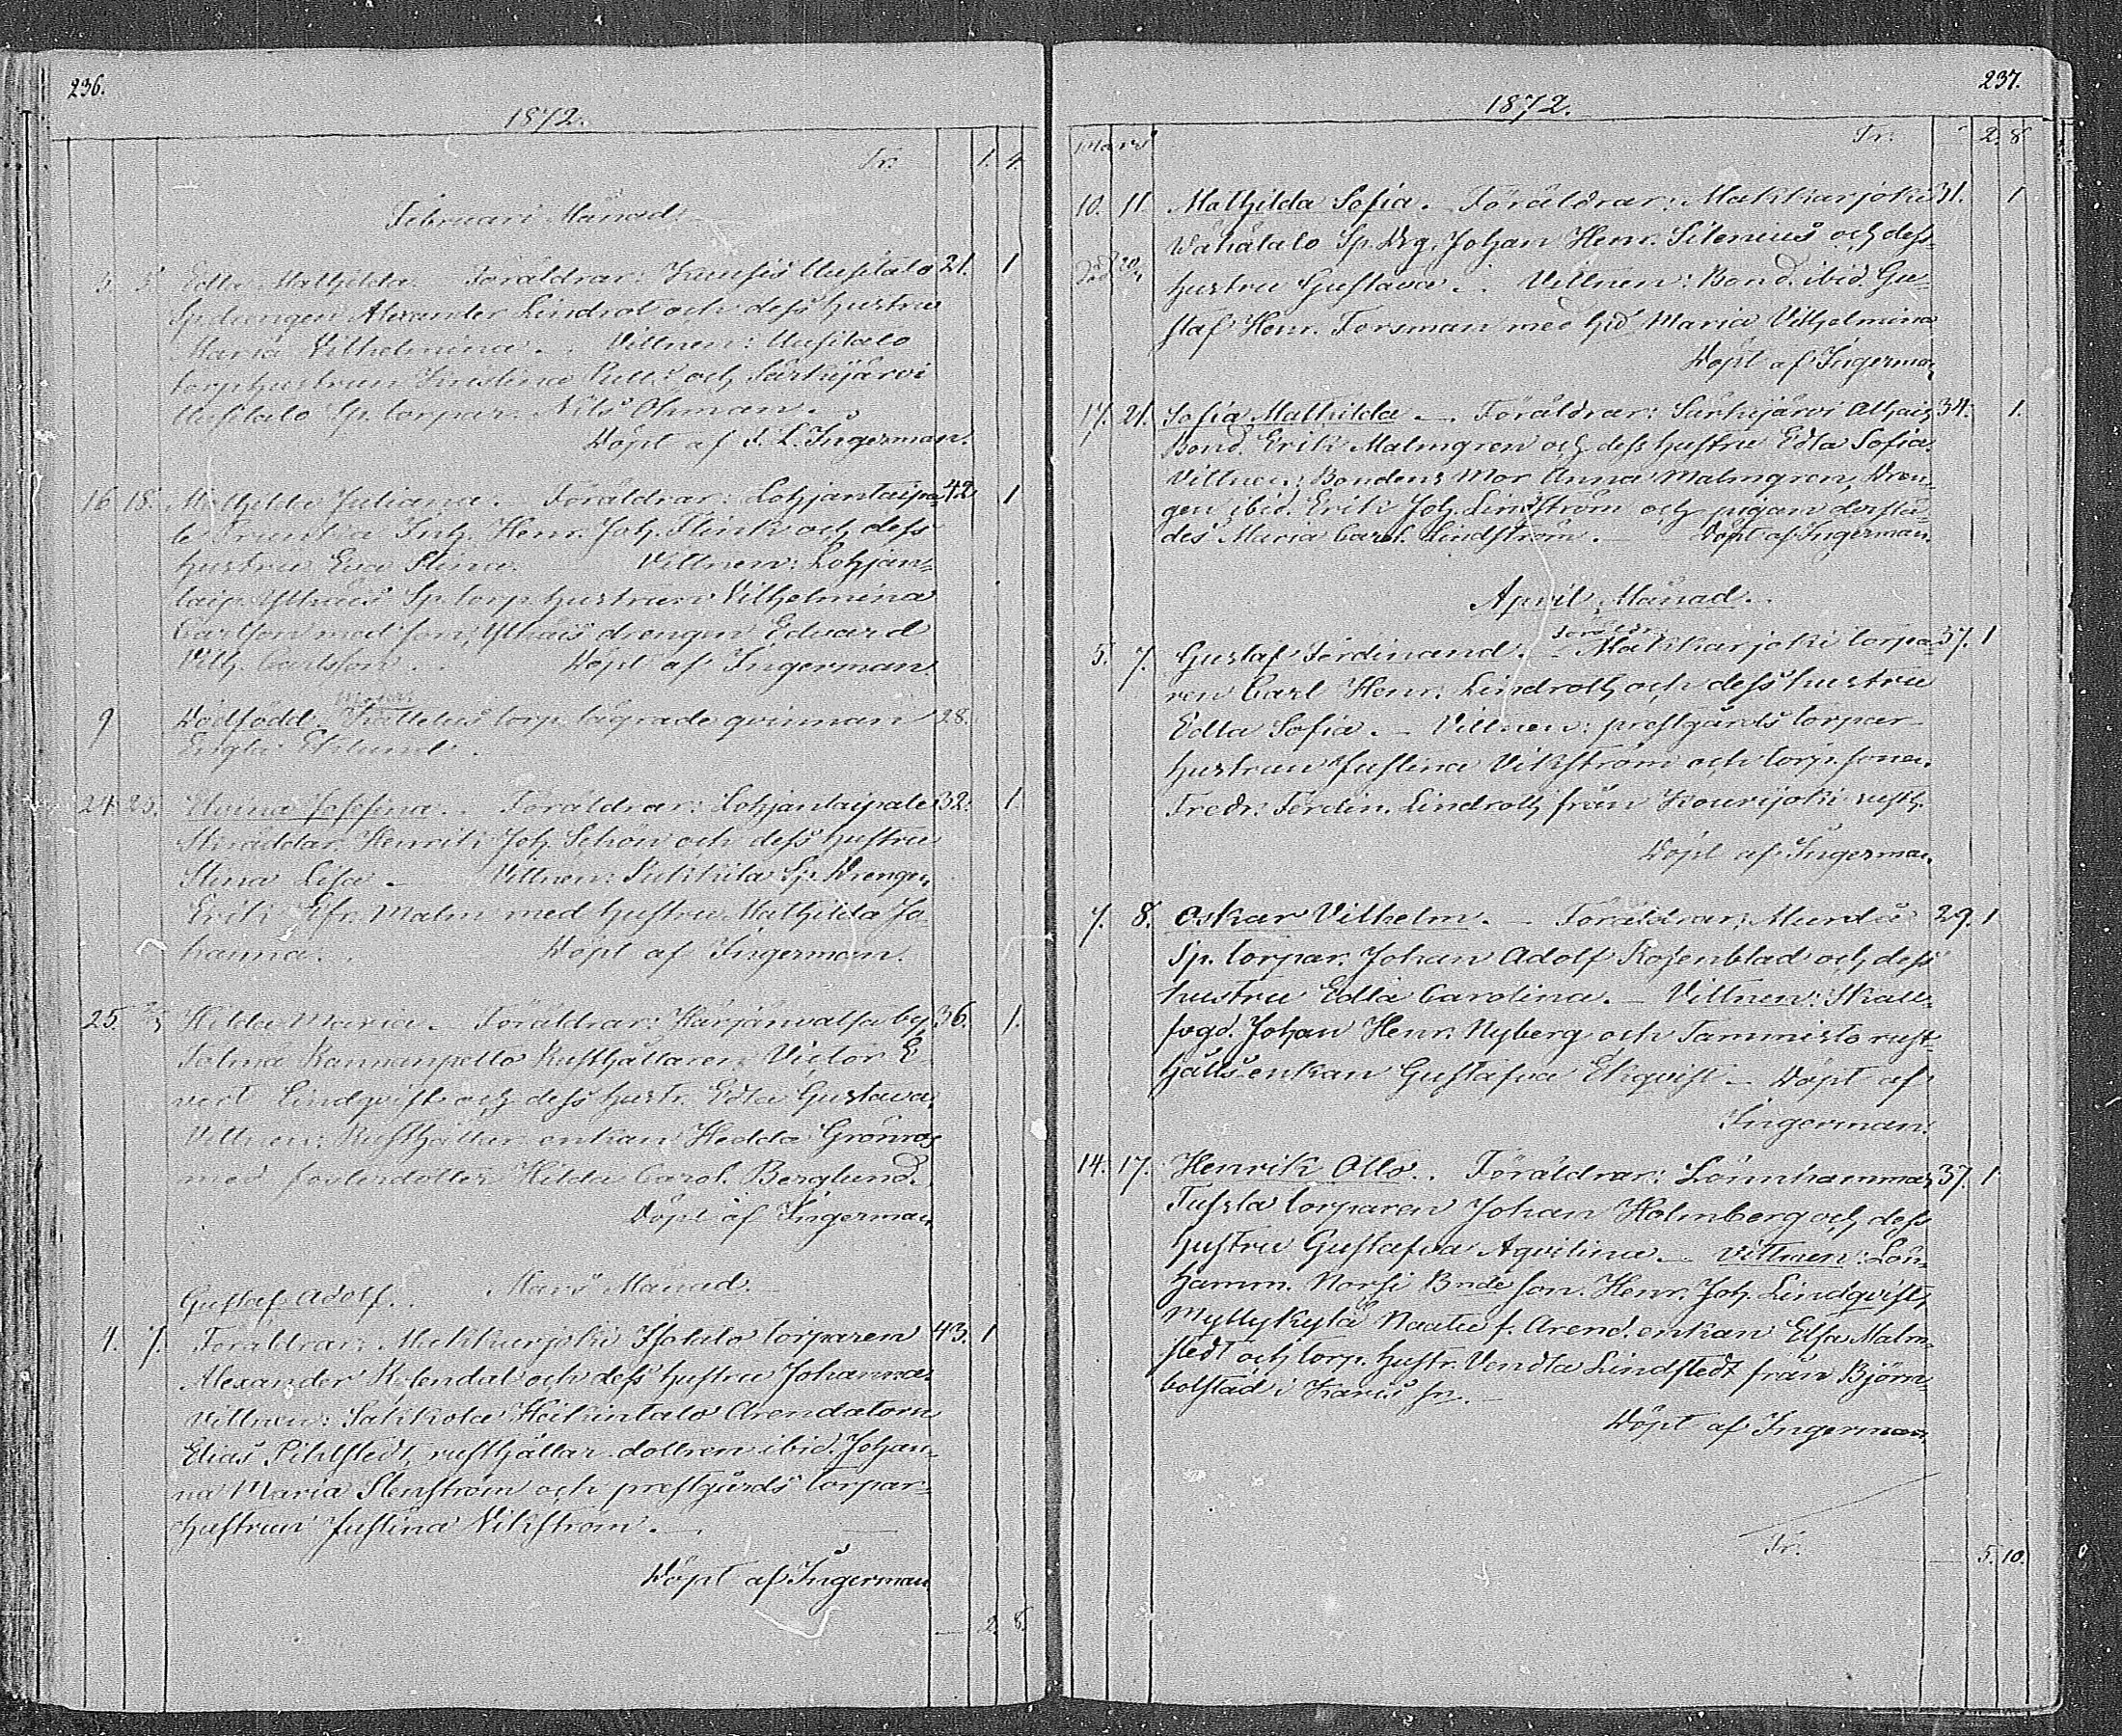 236.
1872.
Tr. 1. 4.
Februari Månad
3. 5. Edla Mathilda. Föräldrar: Kuusis Uusitalo 21. 1
Sp. drengen Alexander Lindrot och dess hustru
Maria Vilhelmina. Vittnen: Uusitalo
torp. hustrun Kristina och Särkijärvi
Uusitalo Sp. torpar. Nils Öhman.
Döpt af F. L. Ingerman.
16. 18. Mathilda Juliana. Föräldrar: Lohjantaipa- 42 1
le Inh. Henr. Joh. Flink och dess
hustru Eva Stina. Vittnen: Lohjan-
taip. Sp. torp. hustrun Vilhelmina
Carlson med son, drengen Edvard
Vilh. Carlsson. Döpt af Ingerman.
9 Dödfödd. Moder: torp. lägrade qvinnan 28.
Engla Eklund.
24. 25. Elvina Josefina. Föräldrar: Lohjantaipale 32. 1
Skräddar. Henrik Joh. Schön och dess hustru
Stina Lisa. Vittnen: Pukkila Sp. Drengen
Erik Efr. Malm med hustru Mathilda Jo-
hanna. Döpt af Ingerman.
25. Hilda Maria. Föräldrar: Härjänvatsa by 36. 1.
Tolma Rusthållaren Victor E-
vert Lindqvist och dess hustr. Edla Gustava.
Vittnen: Rusthållar enkan Hedda Grönros
med fosterdotter Hilda Carol. Berglund.
Döpt af Ingerman
Mars Månad.
Gustaf Adolf.
4. 7. Föräldrar: Makkarjoki Isotalo torparen 43. 1
Alexander Rosendal och dess hustru Johanna.
Vittnen: Sakkola Heikintalo Arendatorn
Elias Pihlstedt, rusthållar dottren ibid. Johan-
na Maria Stenström och prestgårds torpar-
hustrun Justina Vikström.
Döpt af Ingerman
2. 8.
237.
1872.
Mars Tr. 2. 8
10. 11. Mathilda Sofia. Föräldrar: Makkarjoki 31. 1
Vähätalo Sp. Drg. Johan Henr. Silenius och dess
Död 20/ hustru Gustava. Vittnen: Bond. ibid. Gu-
staf Henr. Forsman med h. Maria Vilhelmina
Döpt af Ingerman
17. 21. Sofia Mathilda. Föräldrar: Särkijärvi 34. 1.
Bond. Erik Malmgren och dess hustru Edla Sofia.
Vittnen: Bondens Mor Anna Malmgren, Dren-
gen ibid. Erik Joh. Lindström och pigan derstä-
des Maria Carol. Lindström. Döpt af Ingerman.
April Månad.
5. 7. Gustaf Ferdinand. Föräldr: Makkarjoki torpa- 37. 1
ren Carl Henr. Lindroth och dess hustru
Edla Sofia. Vittnen: prestgårds torpar-
hustrun Justina Vikström och torp. sonen
Fredr. Ferdin. Lindroth från Kourijoki rusth.
Döpt af Ingerman.
7. 8. Oskar Vilhelm. Föräldrar: 29. 1
Sp. torpar. Johan Adolf Rosenblad och dess
hustru Edla Carolina. Vittnen: Skall-
fogd. Johan Henr. Nyberg och Tammisto rust-
hålls enkan Gustafva Ekqvist. Döpt af
Ingerman.
14. 17. Henrik Otto. Föräldrar: Lönnhammar 37. 1
torparen Johan Holmberg och dess
hustru Gustafva Aqvilina. Vittnen: Lön-
hamm. Norsi Bnde son. Henr. Joh. Lindqvist,
Myllykylä Naatu f. Arend. enkan Elsa Malm-
stedt och torp. hustr. Vendla Lindstedt från Björn-
bolstad i Karis sn.
Döpt af Ingerman
Tr. 5. 10.